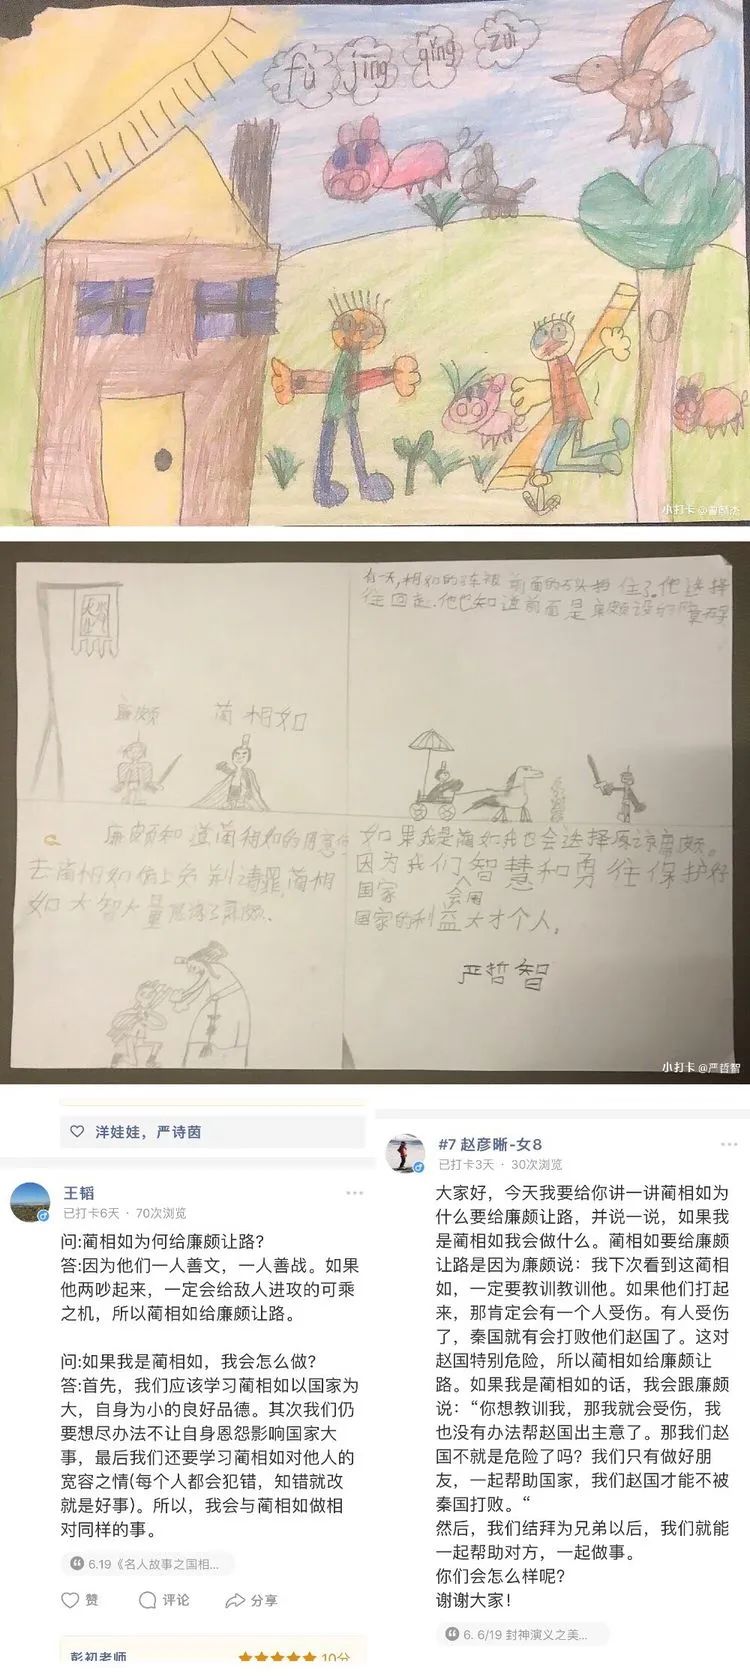 fu jing qing zui
小打卡 @
廉颇 蔺相如
有一天,相如的马车被前面的石头挡住了。他选择
往回走.他也知道前面是廉颇设的障碍
廉颇知道蔺相如的用意后
去蔺相如府上负荆请罪,蔺相
如大智大量原谅了廉颇.
如果我是蔺如我也会选择原谅廉颇。
因为我们会用智慧和勇往保护好
国家
国家的利益大才个人,
严哲智
小打卡 @严哲智
洋娃娃，严诗茵
王韬
已打卡6天 · 70次浏览
问:蔺相如为何给廉颇让路？
答:因为他们一人善文，一人善战。如果
他两吵起来，一定会给敌人进攻的可乘
之机，所以蔺相如给廉颇让路。
问:如果我是蔺相如，我会怎么做？
答:首先，我们应该学习蔺相如以国家为
大，自身为小的良好品德。其次我们仍
要想尽办法不让自身恩怨影响国家大
事，最后我们还要学习蔺相如对他人的
宽容之情(每个人都会犯错，知错就改
就是好事)。所以，我会与蔺相如做相
对同样的事。
6.19《名人故事之国相...
赞 评论 分享
彭初老师 10分
#7 赵彦晰-女8
已打卡3天 · 30次浏览
大家好，今天我要给你讲一讲蔺相如为
什么要给廉颇让路，并说一说，如果我
是蔺相如我会做什么。蔺相如要给廉颇
让路是因为廉颇说：我下次看到这蔺相
如，一定要教训教训他。如果他们打起
来，那肯定会有一个人受伤。有人受伤
了，秦国就有会打败他们赵国了。这对
赵国特别危险，所以蔺相如给廉颇让
路。如果我是蔺相如的话，我会跟廉颇
说：“你想教训我，那我就会受伤，我
也没有办法帮赵国出主意了。那我们赵
国不就是危险了吗？我们只有做好朋
友，一起帮助国家，我们赵国才能不被
秦国打败。“
然后，我们结拜为兄弟以后，我们就能
一起帮助对方，一起做事。
你们会怎么样呢？
谢谢大家！
6. 6/19 封神演义之美...